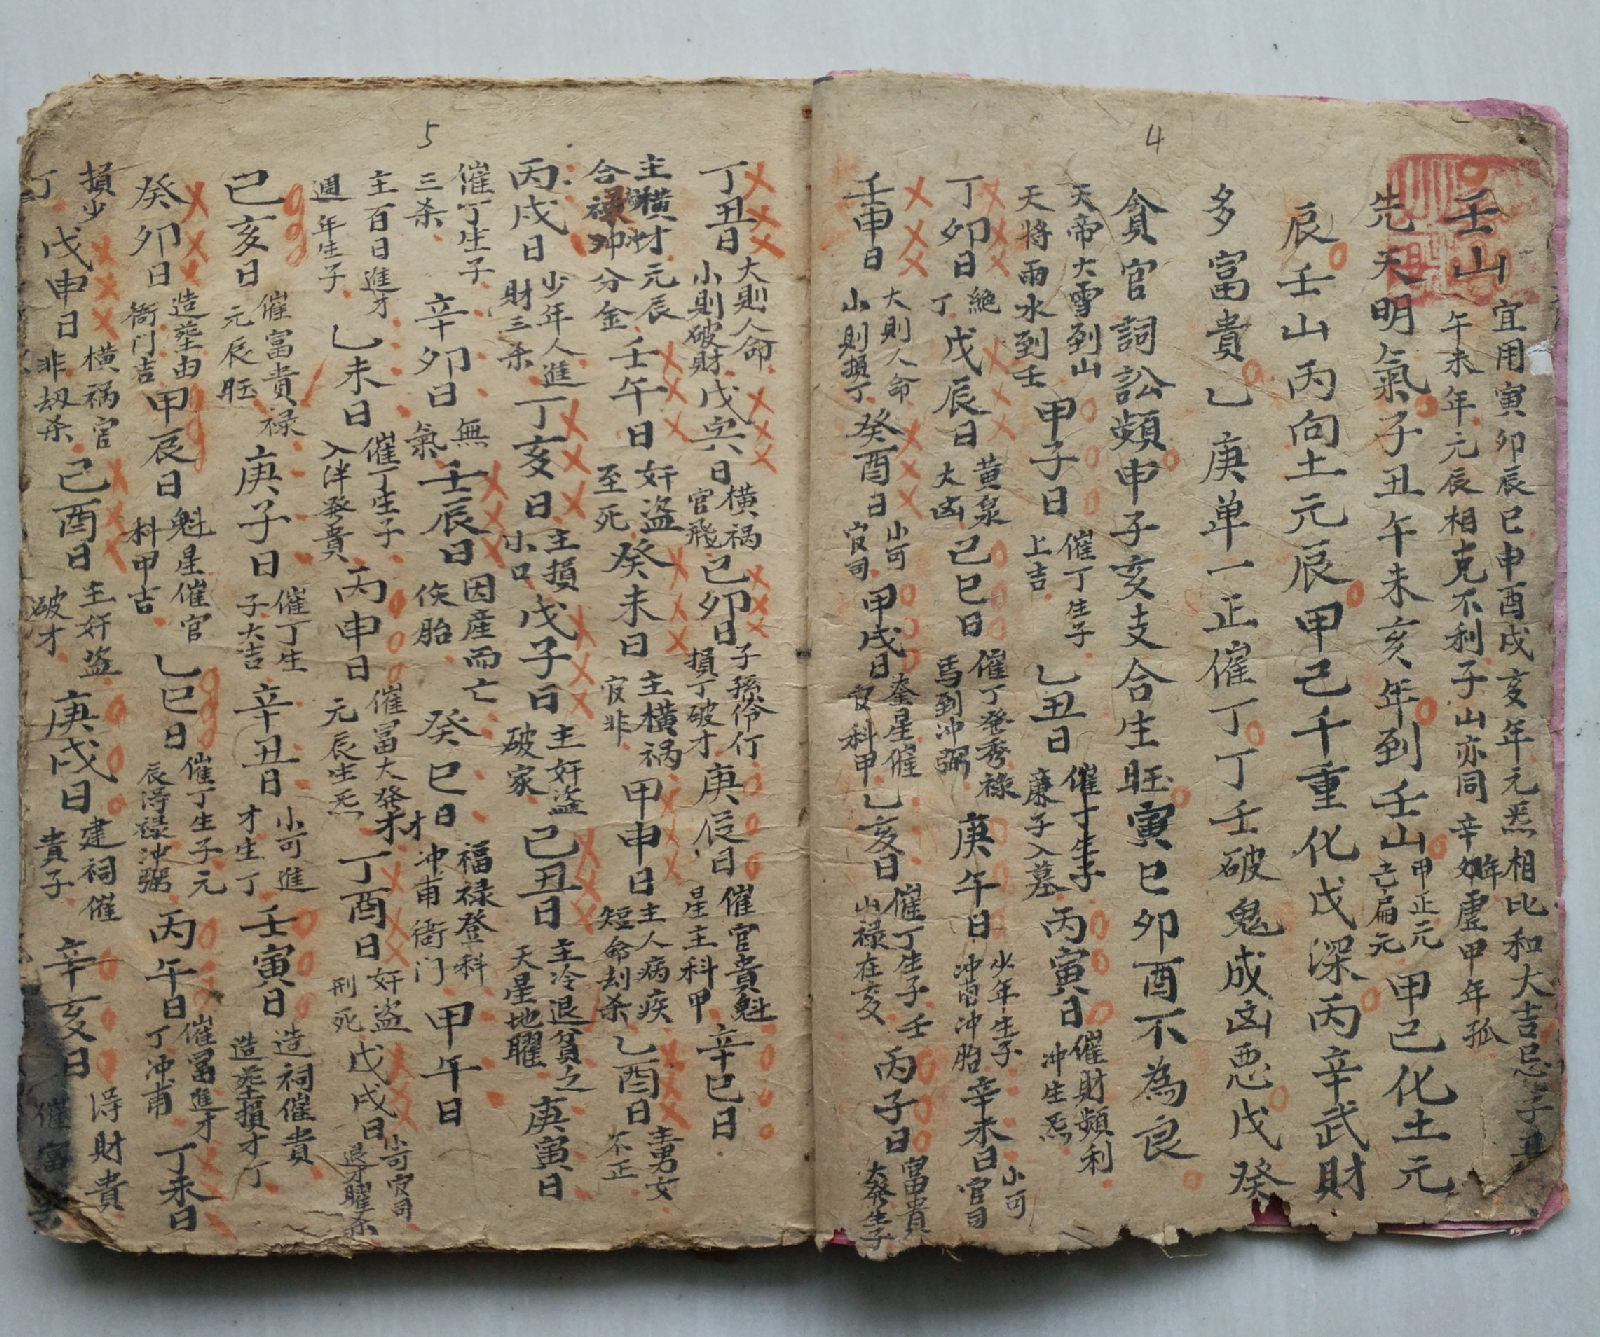 4
壬山 宜用寅卯辰巳申酉戌亥年元悉相比和大吉忌子丑
午未年元辰相克不利子山亦同辛卯年虚甲年孤
先天明氣子丑午未亥年到壬山甲正元甲己化土元
辰壬山丙向土元辰甲己千重化戊深丙辛武財
多富貴乙庚单一正催丁丁壬破鬼成凶恶戊癸
貪官詞訟頻申子亥支合生旺寅巳卯酉不為良
天帝大雪到山
天將雨水到壬
甲子日 催丁生子
上吉
乙丑日 催丁生子
廉子入墓
丙寅日 催財頻利
冲生炁
丁卯日 絶
丁
戊辰日 黄泉
大凶
己巳日 催丁發秀禄
馬到冲弼
庚午日 少年生子
冲甫冲胎
辛未日 小可
官司
壬申日 大則人命
小則損丁
癸酉日 小可
官司
甲戌日 奎星催
官科甲
乙亥日 催丁生子壬
山禄在亥
丙子日 富貴
大發生子
5
丁丑日 大則人命
小則破財
戊寅日 横祸
官飛
己卯日 子孫伶仃
損丁破才
庚辰日 催官貴魁
星主科甲
辛巳日
主横才元辰
合禄卯分金
壬午日 奸盗
至死
癸未日 主横祸
官非
甲申日 主人病疾
短命刦杀
乙酉日 主男女
不正
丙戌日 少年人進
財三杀
丁亥日 主損
小口
戊子日 主奸盗
破家
己丑日 主冷退貧之
天星地曜
庚寅日
催丁生子
三杀
辛卯日 無
氣
壬辰日 因産而亡
侯胎
癸巳日 福禄登科
才冲甫衙门
甲午日
主百日進才
週年生子
乙未日 催丁生子
入泮發貴
丙申日 催冨大發才
元辰生炁
丁酉日 奸盗
刑死
戊戌日 小可官司
退才曜杀
己亥日 催富貴禄
元辰旺
庚子日 催丁生
子大吉
辛丑日 小可進
才生丁
壬寅日 造祠催貴
造葬損才丁
癸卯日 造葬由
衙门吉
甲辰日 魁星催官
科甲吉
乙巳日 催丁生子元
辰淂禄冲弼
丙午日 催冨進才
丁冲甫
丁未日
損少
丁
戊申日 横祸官
非刼杀
己酉日 主奸盗
破才
庚戌日 建祠催
貴子
辛亥日 淂財貴
催富